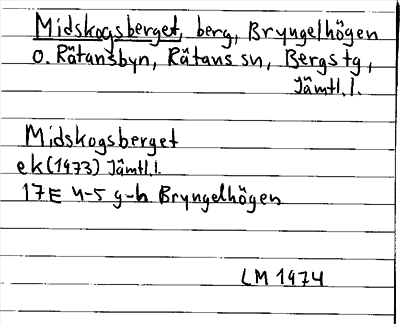 Midskogsberget, berg, Bryngelhögen
o. Rätansbyn, Rätans sn, Bergs tg,
Jämtl. l.
Midskogsberget
ek (1973) Jämtl. l.
17E 4-5 g-h Bryngelhögen
LM 1974